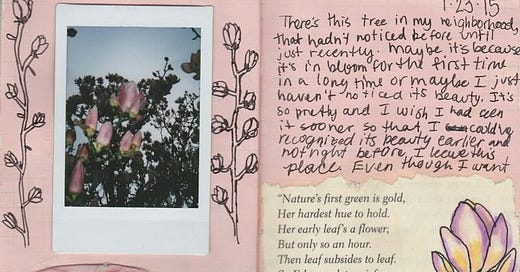 1-23-15
There's this tree in my neighborhood,
that hadn't noticed before until
just recently. Maybe its because
it's in bloom for the first time
in a long time or maybe I just
haven't noticed its beauty. It's
so pretty and I wish I had seen
it sooner so that I could've
recognized its beauty earlier and
not right before I leave this
place. Even though I want
"Nature's first green is gold,
Her hardest hue to hold.
Her early leaf's a flower;
But only so an hour.
Then leaf subsides to leaf.